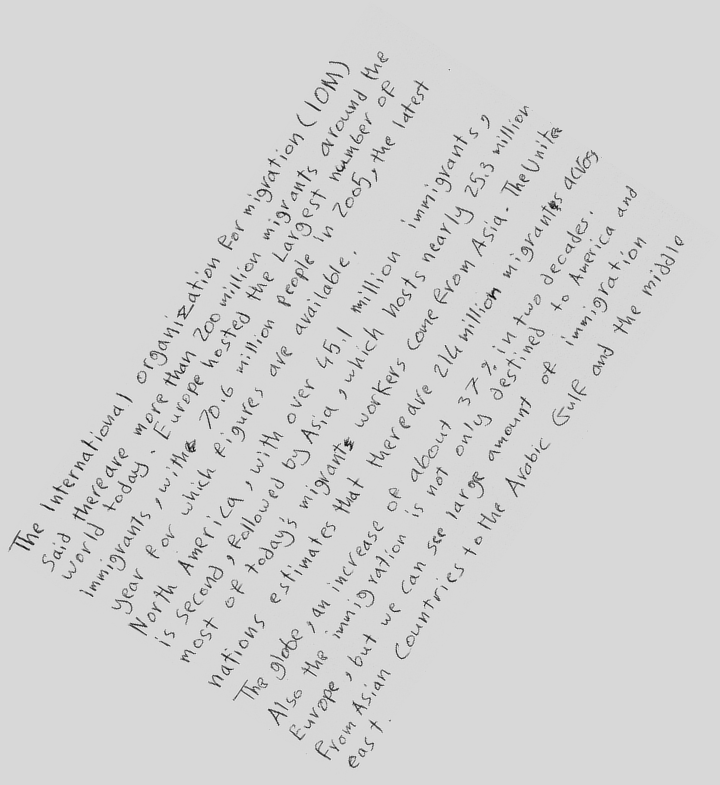 The International organization for migration (IOM)
said thereare more than 200 million migrants arround the
world today. Europe hosted the Largest number of
immigrants, with 70.6 million people in 2005, the latest
year for which figures are available.
North America, with over 45.1 million immigrants,
is second, followed by Asia, which hosts nearly 25.3 million
most of today's migrants workers come from Asia. The Unite
nations estimates that thereare 214 million migrants across
The globe, an increase of about 37% in two decades.
Also the immigration is not only destined to America and
Europe, but we can see large amount of immigration
from Asian Countries to the Arabic Gulf and the middle
east.